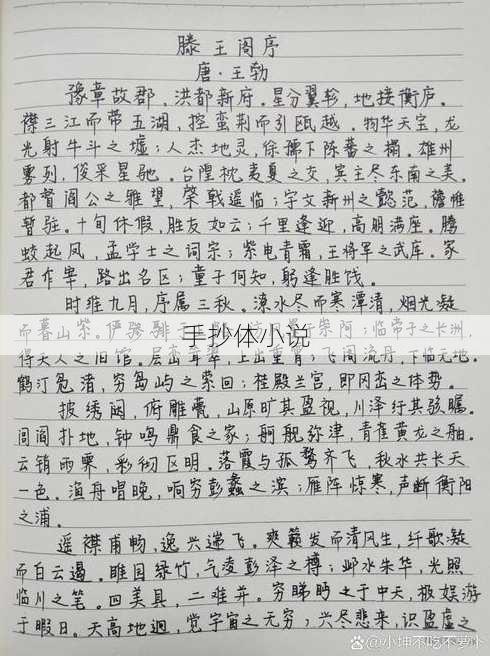 滕王阁序
唐·王勃
豫章故郡，洪都新府。星分翼轸，地接衡庐。
襟三江而带五湖，控蛮荆而引瓯越。物华天宝，龙
光射牛斗之墟；人杰地灵，徐孺下陈蕃之榻。雄州
雾列，俊采星驰。台隍枕夷夏之交，宾主尽东南之美。
都督阎公之雅望，棨戟遥临；宇文新州之懿范，襜帷
暂驻。十旬休假，胜友如云；千里逢迎，高朋满座。腾
蛟起凤，孟学士之词宗；紫电青霜，王将军之武库。家
君作宰，路出名区；童子何知，躬逢胜饯。
时维九月，序属三秋。潦水尽而寒潭清，烟光凝
而暮山紫。俨骖騑于 崇阿；临帝子之长洲，
手抄体小说
得天人之旧馆。层峦耸翠，上出重霄；飞阁流丹，下临无地。
鹤汀凫渚，穷岛屿之萦回；桂殿兰宫，即冈峦之体势。
披绣闼，俯雕甍，山原旷其盈视，川泽纡其骇瞩。
闾阎扑地，钟鸣鼎食之家；舸舰弥津，青雀黄龙之舳。
云销雨霁，彩彻区明。落霞与孤鹜齐飞，秋水共长天
一色。渔舟唱晚，响穷彭蠡之滨；雁阵惊寒，声断衡阳
之浦。
遥襟甫畅，逸兴遄飞。爽籁发而清风生，纤歌凝
而白云遏。睢园绿竹，气凌彭泽之樽；邺水朱华，光照
临川之笔。四美具，二难并。穷睇眄于中天，极娱游
于暇日。天高地迥，觉宇宙之无穷；兴尽悲来，识盈虚之
@小坤不吃不萝卜